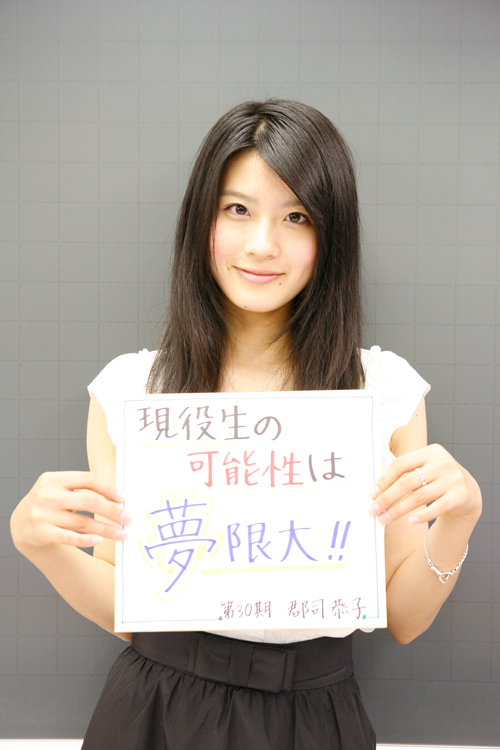 現役生の
可能性は
夢限大!!
第30期 郡司 恭子